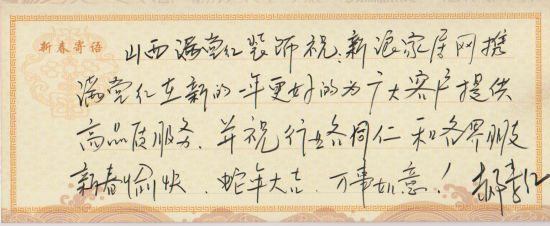 新春寄语
山西满堂红装饰祝.新浪家居网携
满堂红在新的一年更好的为广大客户提供
高品质服务.并祝行业各同仁和各界朋友
新春愉快.蛇年大吉.万事如意!